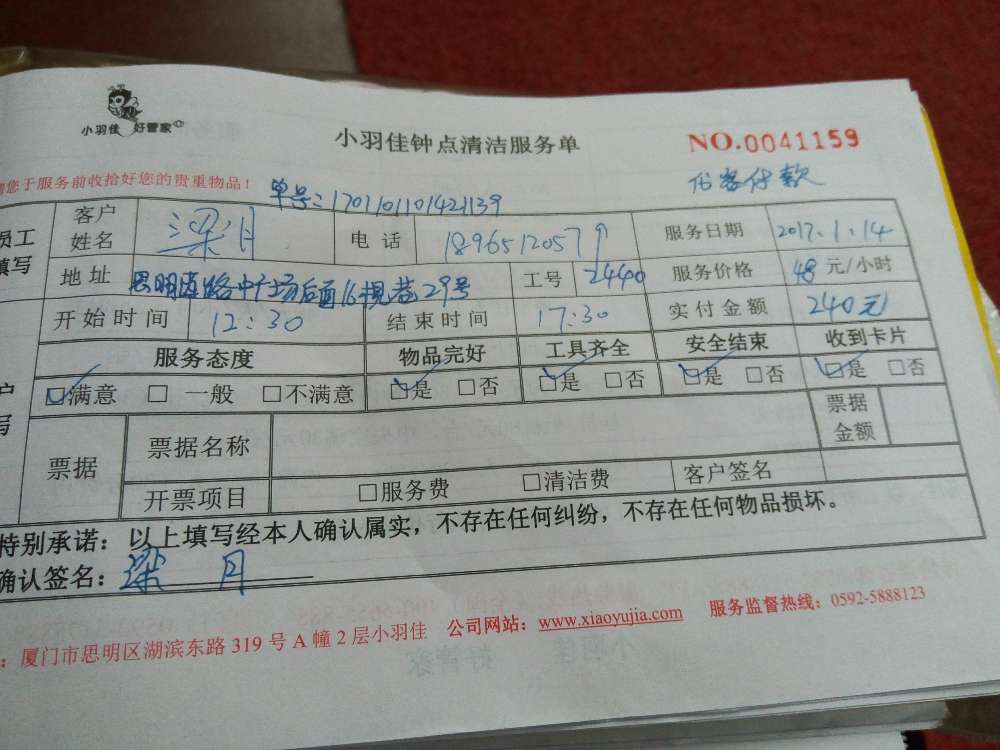 小羽佳 好管家
小羽佳钟点清洁服务单
NO.0041159
您于服务前收拾好您的贵重物品！
单号：1701101101421139
代客付款
员工填写
客户姓名 梁月 电话 18965120579 服务日期 2017.1.14
地址 思明 路中 场后面 巷29号 工号 2440 服务价格 48 元/小时
开始时间 12:30 结束时间 17:30 实付金额 240元
服务态度 物品完好 工具齐全 安全结束 收到卡片
☑满意 □ 一般 □不满意 ☑是 □否 ☑是 □否 ☑是 □否 ☑是 □否
票据 票据名称 票据金额
开票项目 □服务费 □清洁费 客户签名
特别承诺：以上填写经本人确认属实，不存在任何纠纷，不存在任何物品损坏。
确认签名：梁月
：厦门市思明区湖滨东路 319 号 A 幢 2 层小羽佳 公司网站：www.xiaoyujia.com 服务监督热线：0592-5888123